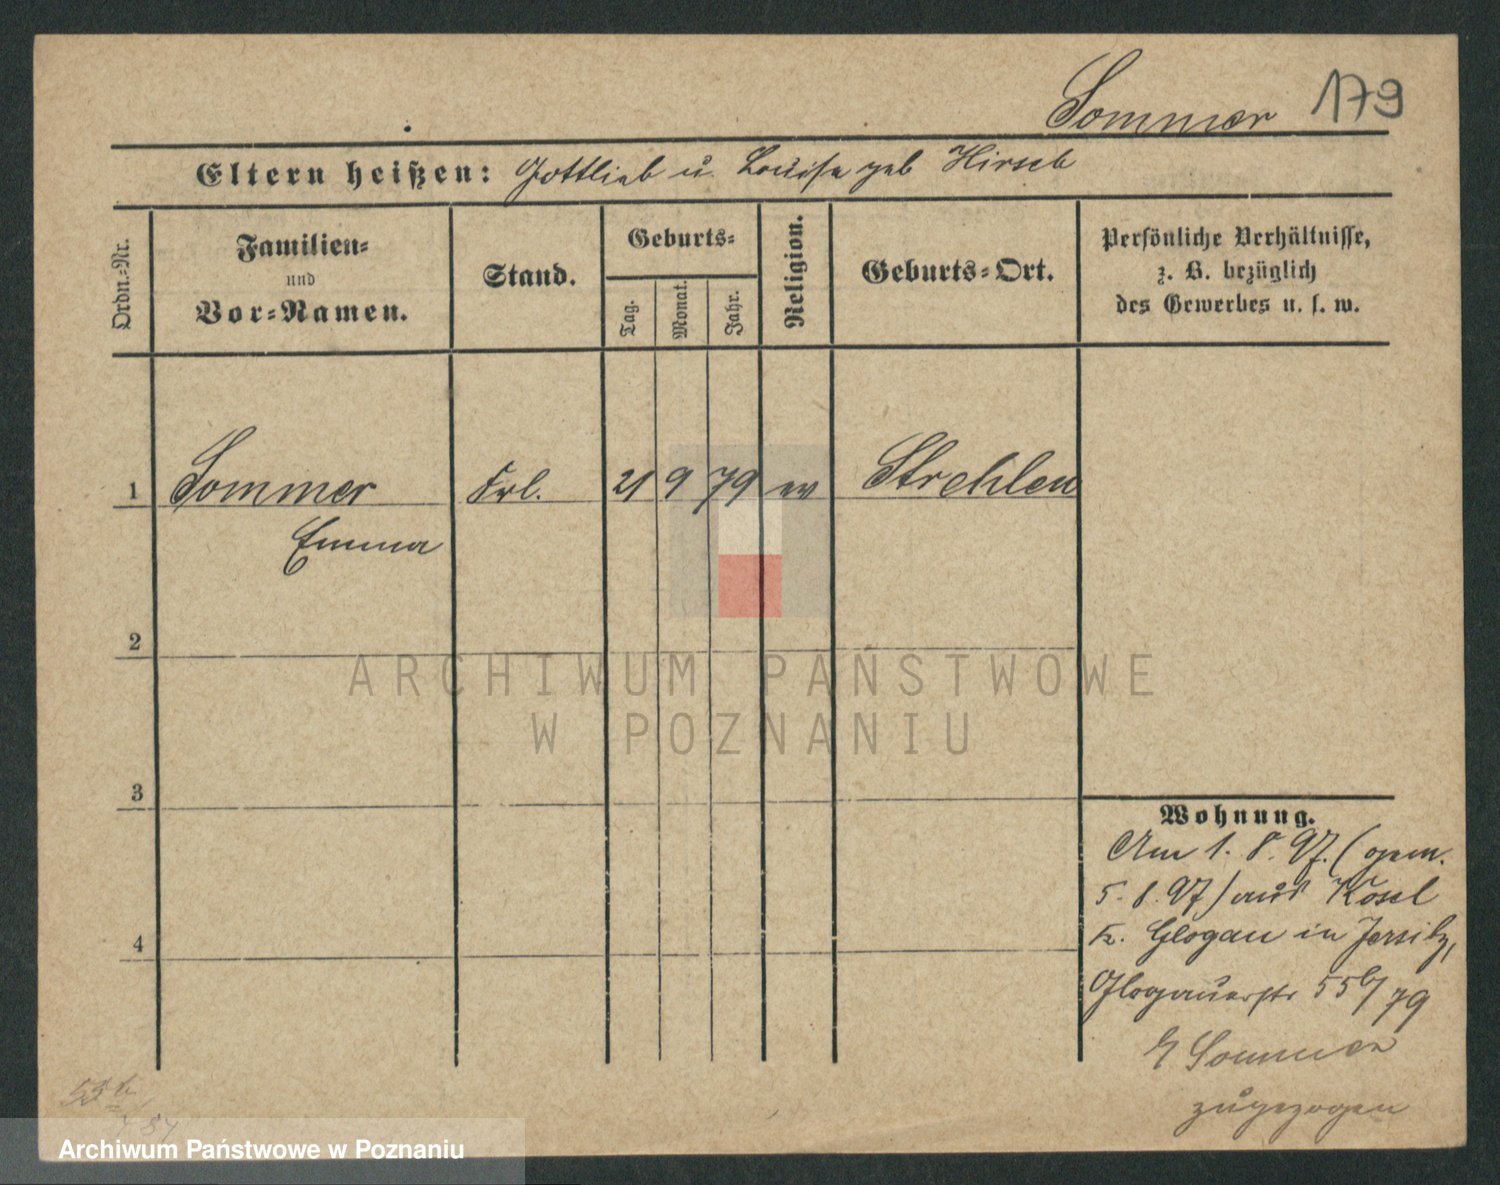 Sommer 179
Eltern heißen: Gottlieb u. Louise geb Hirsch
Ordn.-Nr.
Familien-
und
Vor-Namen.
Stand.
Geburts-
Tag.
Monat.
Jahr.
Religion.
Geburts-Ort.
Persönliche Verhältnisse,
z. B. bezüglich
des Gewerbes u. s. w.
1 Sommer Frl. 21 9 79 ev Strehlen
Emma
2
ARCHIWUM PAŃSTWOWE
W POZNANIU
3
Wohnung.
Am 1. 8. 97. (gem.
5. 8. 97) aus Kosel
4
Kr. Glogau in Jersitz,
Glogauerstr 55b/79
Sommer
zugezogen
55b
Archiwum Państwowe w Poznaniu